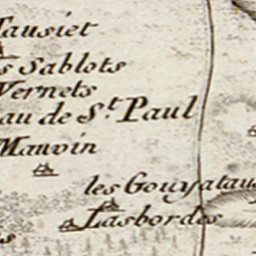 ausiet
s Sablots
Vernets
au de S.t Paul
Mauvin
les Gouyatau
Lasbordes
s